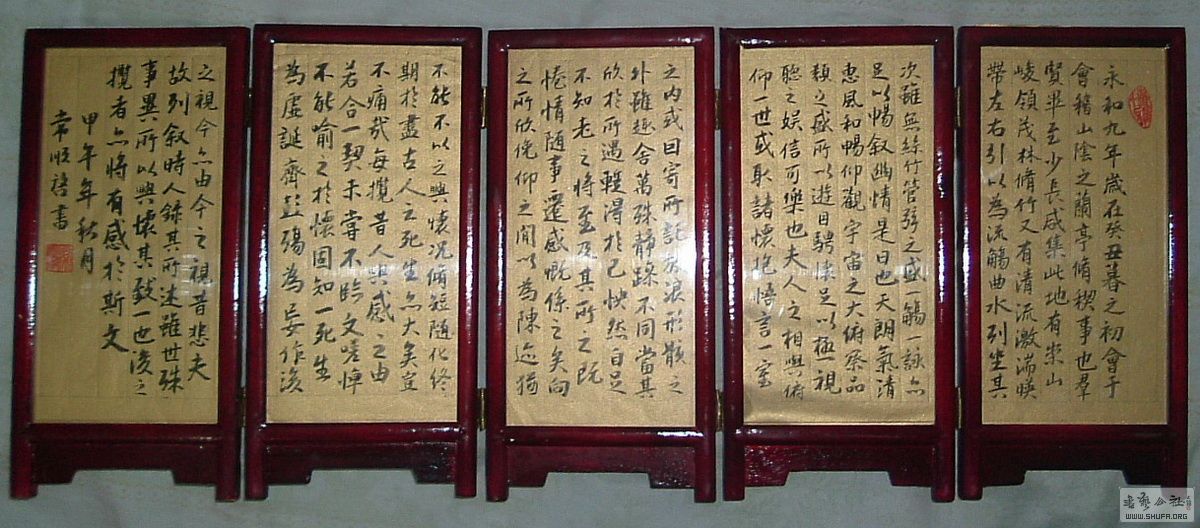 永和九年歲在癸丑暮之初會于
會稽山陰之蘭亭脩稧事也羣
賢畢至少長咸集此地有崇山
峻領茂林脩竹又有清流激湍暎
帶左右引以為流觴曲水列坐其
次雖無絲竹管弦之盛一觴一詠亦
足以暢叙幽情是日也天朗氣清
惠風和暢仰觀宇宙之大俯察品
類之盛所以遊目騁懷足以極視
聽之娛信可樂也夫人之相與俯
仰一世或取諸懷抱悟言一室
之內或因寄所託放浪形骸之
外雖趣舍萬殊靜躁不同當其
欣於所遇蹔得於己怏然自足
不知老之將至及其所之既
惓情隨事遷感慨係之矣向
之所欣俛仰之間以為陳迹猶
不能不以之興懷況脩短隨化終
期於盡古人云死生亦大矣豈
不痛哉每攬昔人興感之由
若合一契未嘗不臨文嗟悼
不能喻之於懷固知一死生
為虛誕齊彭殤為妄作後
之視今亦由今之視昔悲夫
故列叙時人錄其所述雖世殊
事異所以興懷其致一也後之
攬者亦將有感於斯文
甲午年秋月
常順禧書
書藝公社
WWW.SHUFA.ORG